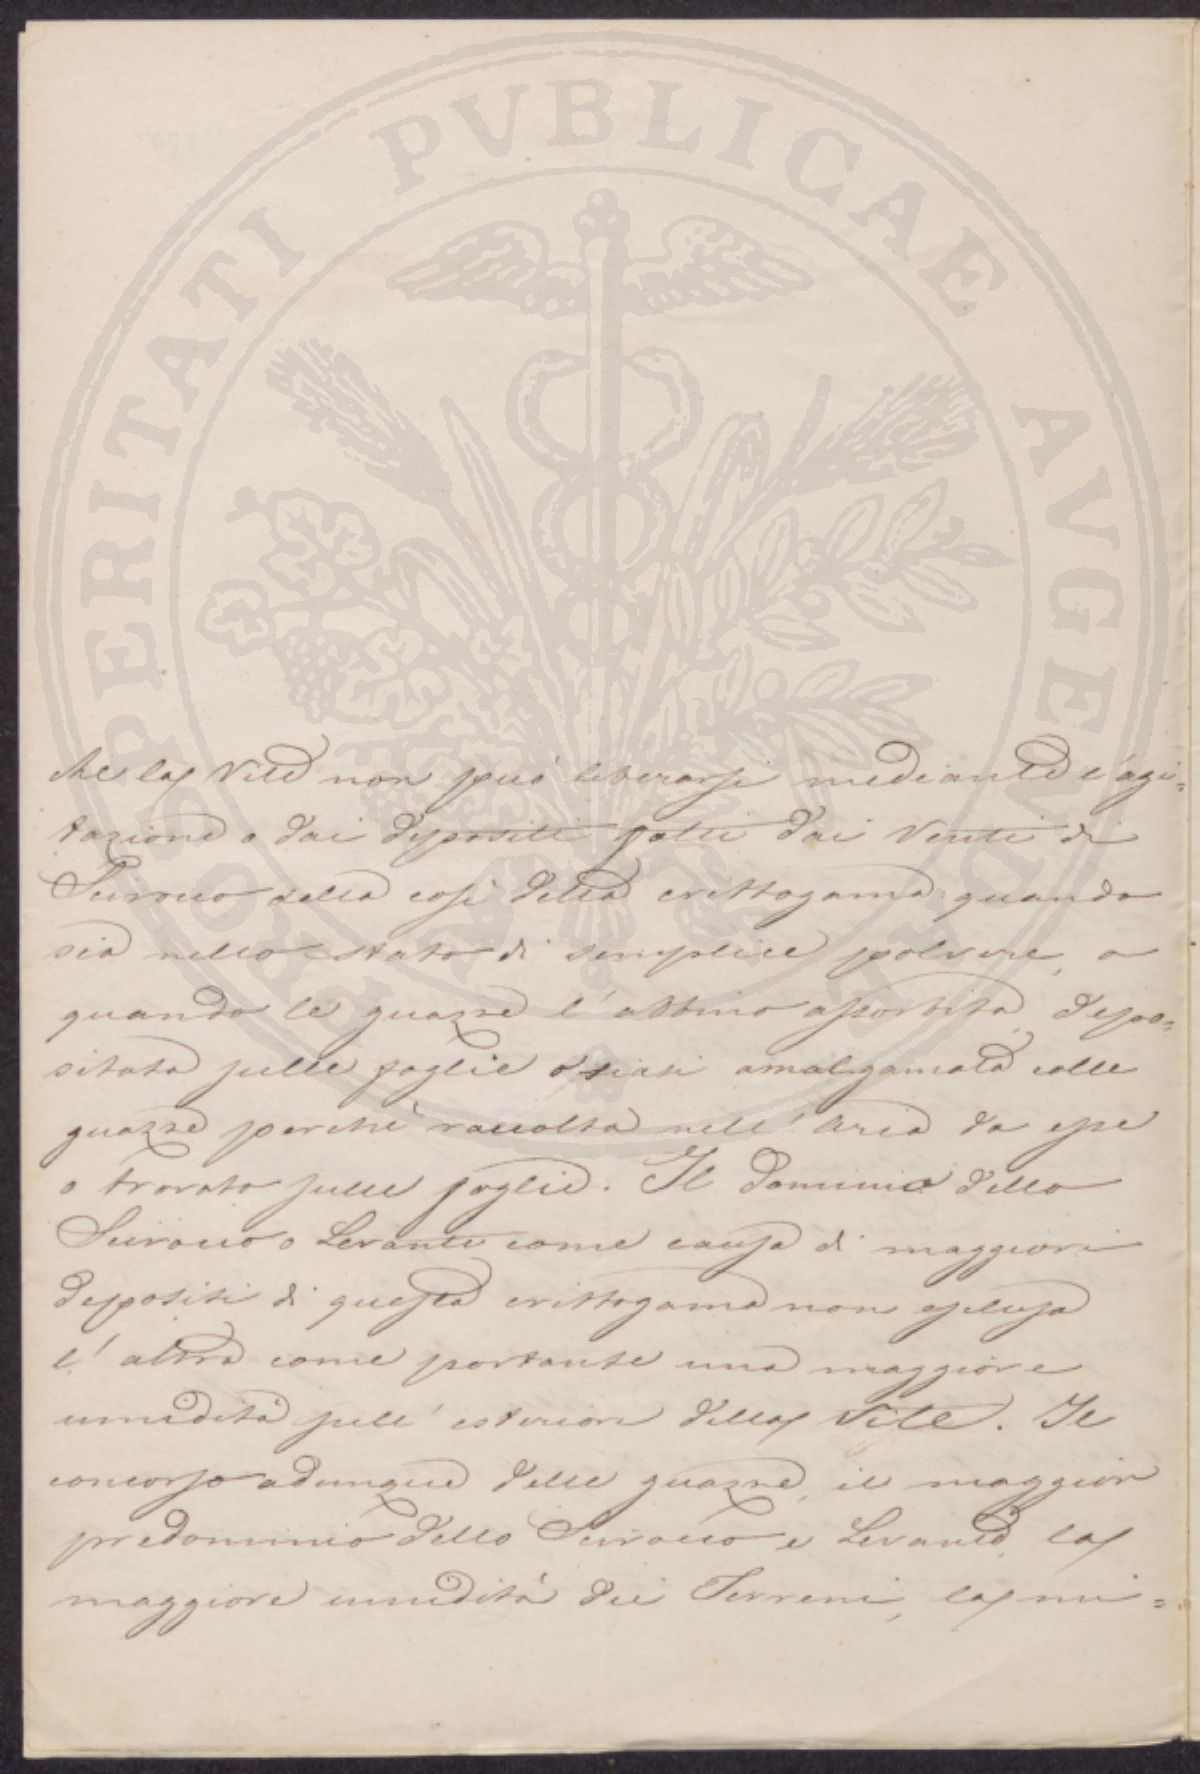 PROSPERITATI PVBLICAE AVGENDAE
che la Vite non può liberarsi mediante l'agi=
tazione o dai depositi fatti dai Venti di
Scirocco della così detta crittogama quando
sia nello stato di semplice polvere, o
quando le guazze l'abbino assorbita, depo=
sitata sulle foglie ossiasi amalgamata colle
guazze perchè raccolta nell'aria da esse
o trovato sulle foglie. Il dominio dello
Scirocco o Levante come causa di maggiori
depositi di questa crittogama non esclusa
l'altra come portante una maggiore
umidità sull'esteriore della Vite. Il
concorso adunque delle guazze, il maggior
predominio dello Scirocco e Levante, la
maggiore umidità dei Terreni, la mi=